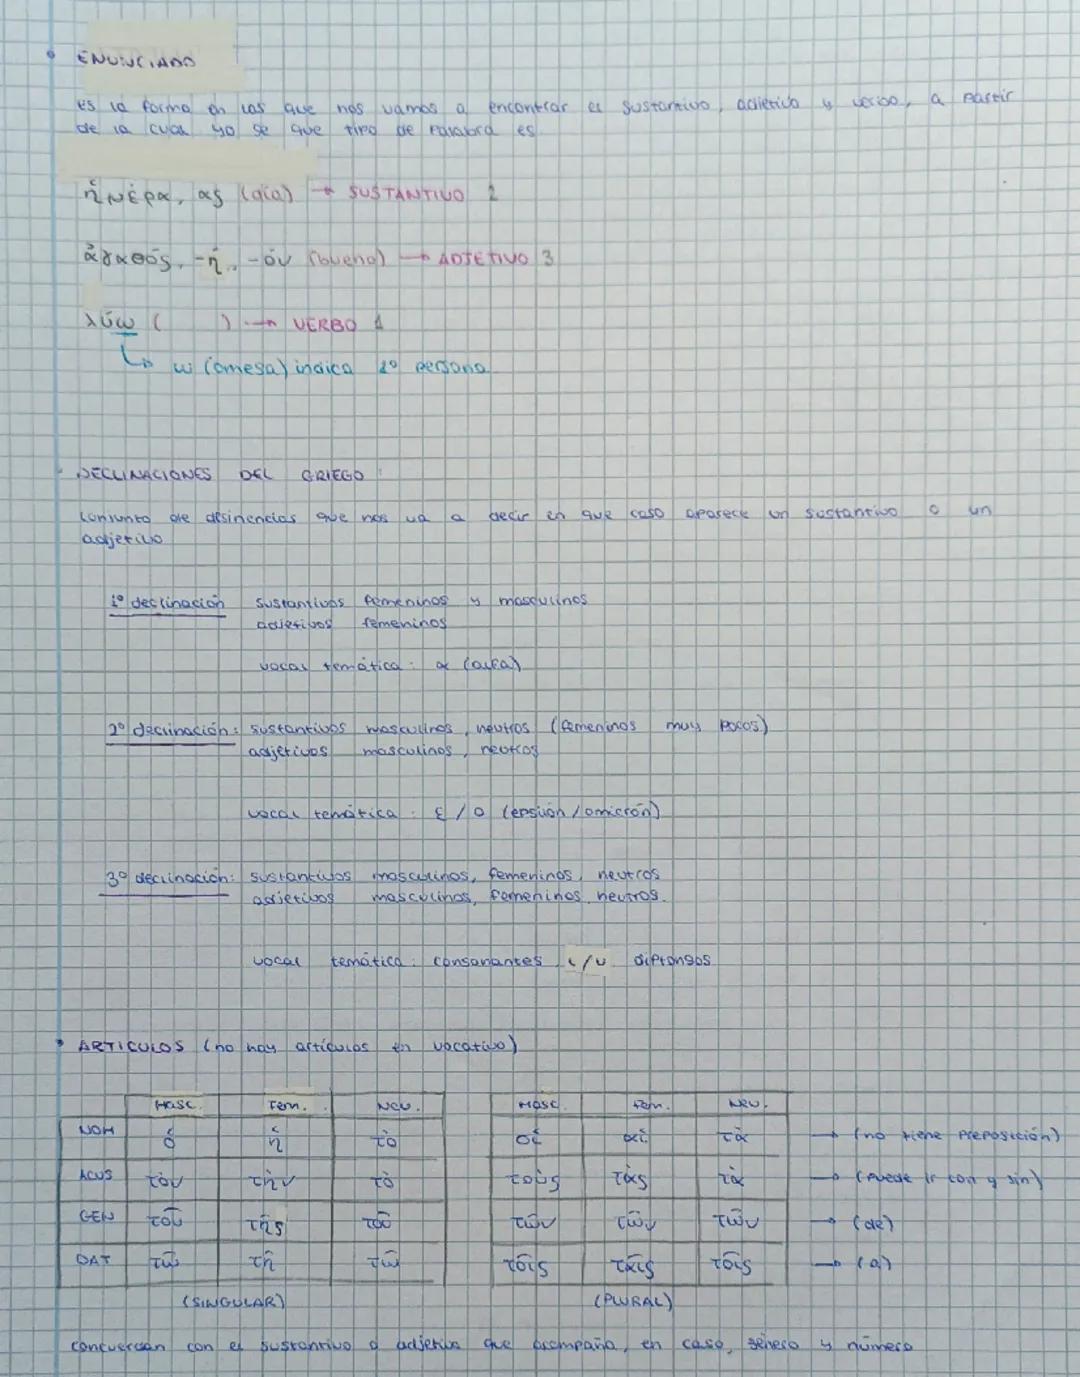 • ENUNCIADO
es la forma en las que nos vamos a encontrar el sustantivo, adjetivo y verbo, a partir
de la cual yo se que tipo de palabra es
ἡμέρα, ας (día) → SUSTANTIVO 2
ἀγαθός, -ή, -όν (bueno) → ADJETIVO 3
λύω ( ) → VERBO 1
↳ ω (omega) indica 1º persona
• DECLINACIONES DEL GRIEGO:
conjunto de desinencias que nos va a decir en que caso aparece un sustantivo o un
adjetivo
1º declinación sustantivos femeninos y masculinos
adjetivos femeninos
vocal temática: α (alfa)
2º declinación: sustantivos masculinos, neutros (femeninos muy pocos)
adjetivos masculinos, neutros
vocal temática: ε / ο (epsilón / omicrón)
3º declinación: sustantivos masculinos, femeninos, neutros
adjetivos masculinos, femeninos, neutros.
vocal temática: consonantes ι/υ diptongos
• ARTICULOS (no hay artículos en vocativo)
Masc. Fem. Neu. Masc. Fem. Neu.
NOM ὁ ἡ τὸ οἱ αἱ τὰ → (no tiene preposición)
ACUS τὸν τὴν τὸ τοὺς τὰς τὰ → (puede ir con y sin)
GEN τοῦ τῆς τοῦ τῶν τῶν τῶν → (de)
DAT τῶ τῆ τῶ τοῖς ταῖς τοῖς → (a)
(SINGULAR) (PLURAL)
concuerdan con el sustantivo o adjetivo que acompaña, en caso, género y número